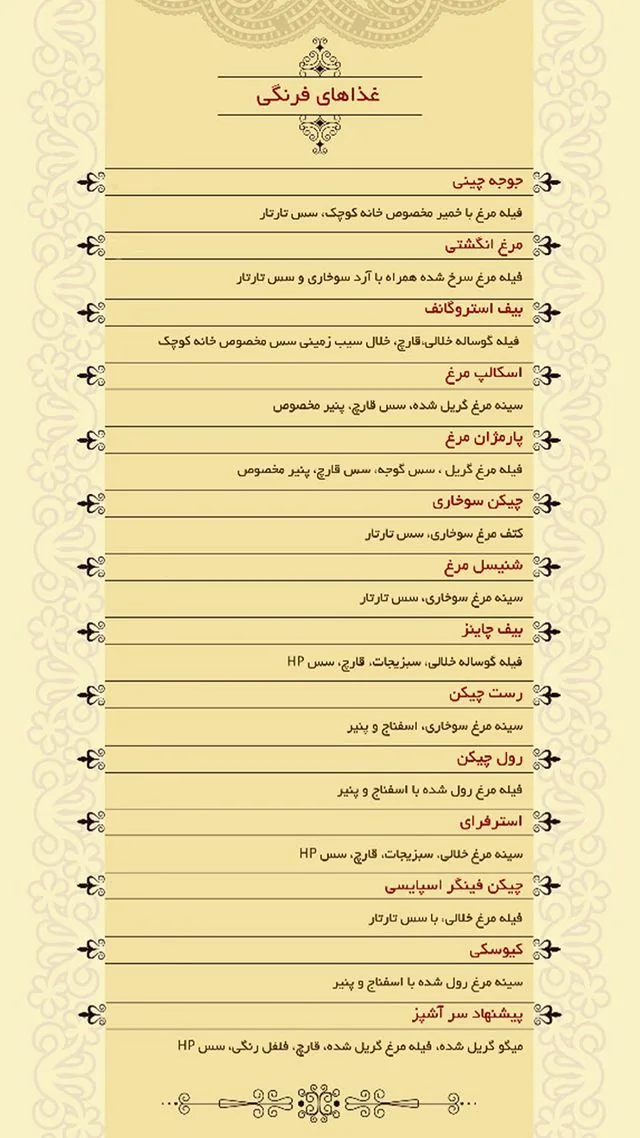 غذاهای فرنگی
جوجه چینی
فیله مرغ با خمیر مخصوص خانه کوچک، سس تارتار
مرغ انگشتی
فیله مرغ سرخ شده همراه با آرد سوخاری و سس تارتار
بیف استروگانف
فیله گوساله خلالی،قارچ، خلال سیب زمینی سس مخصوص خانه کوچک
اسکالپ مرغ
سینه مرغ گریل شده، سس قارچ، پنیر مخصوص
پارمژان مرغ
فیله مرغ گریل ، سس گوجه، سس قارچ، پنیر مخصوص
چیکن سوخاری
کتف مرغ سوخاری، سس تارتار
شنیسل مرغ
سینه مرغ سوخاری، سس تارتار
بیف چاینز
فیله گوساله خلالی، سبزیجات، قارچ، سس HP
رست چیکن
سینه مرغ سوخاری، اسفناج و پنیر
رول چیکن
فیله مرغ رول شده با اسفناج و پنیر
استرفرای
سینه مرغ خلالی، سبزیجات، قارچ، سس HP
چیکن فینگر اسپایسی
فیله مرغ خلالی، با سس تارتار
کیوسکی
سینه مرغ رول شده با اسفناج و پنیر
پیشنهاد سر آشپز
میگو گریل شده، فیله مرغ گریل شده، قارچ، فلفل رنگی، سس HP